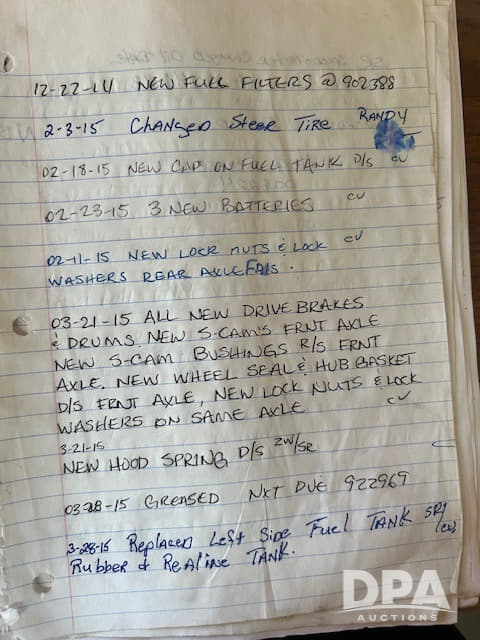 12-22-14 NEW FUEL FILTERS @ 902388
2-3-15 Changed Steer Tire RANDY
02-18-15 NEW CAP ON FUEL TANK D/S CV
02-23-15 3 NEW BATTERIES CV
02-11-15 NEW LOCK NUTS & LOCK CV
WASHERS REAR AXLE D/S.
03-21-15 ALL NEW DRIVE BRAKES
& DRUMS. NEW S-CAM'S FRNT AXLE
NEW S-CAM BUSHINGS R/S FRNT
AXLE. NEW WHEEL SEAL & HUB GASKET
D/S FRNT AXLE, NEW LOCK NUTS & LOCK
WASHERS ON SAME AXLE CV
3-21-15
NEW HOOD SPRING D/S
03-28-15 GREASED NXT DUE 922969
3-28-15 Replaced Left Side Fuel TANK
Rubber & Realine TANK.
DPA
AUCTIONS